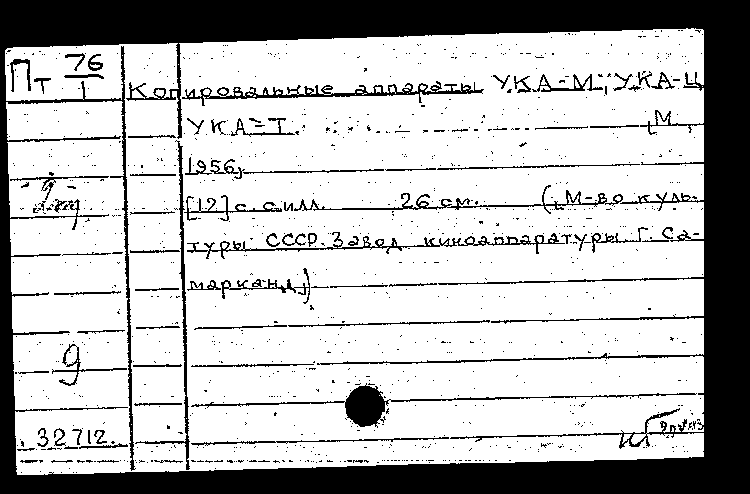 Пт 76/1
Копировальные аппараты УКА-М; УКА-Ц
УКА-Т. [М.,
1956].
[12] с. с илл. 26 см. (М-во куль-
туры СССР. Завод киноаппаратуры. Г. Са-
марканд)
9
9
32712.